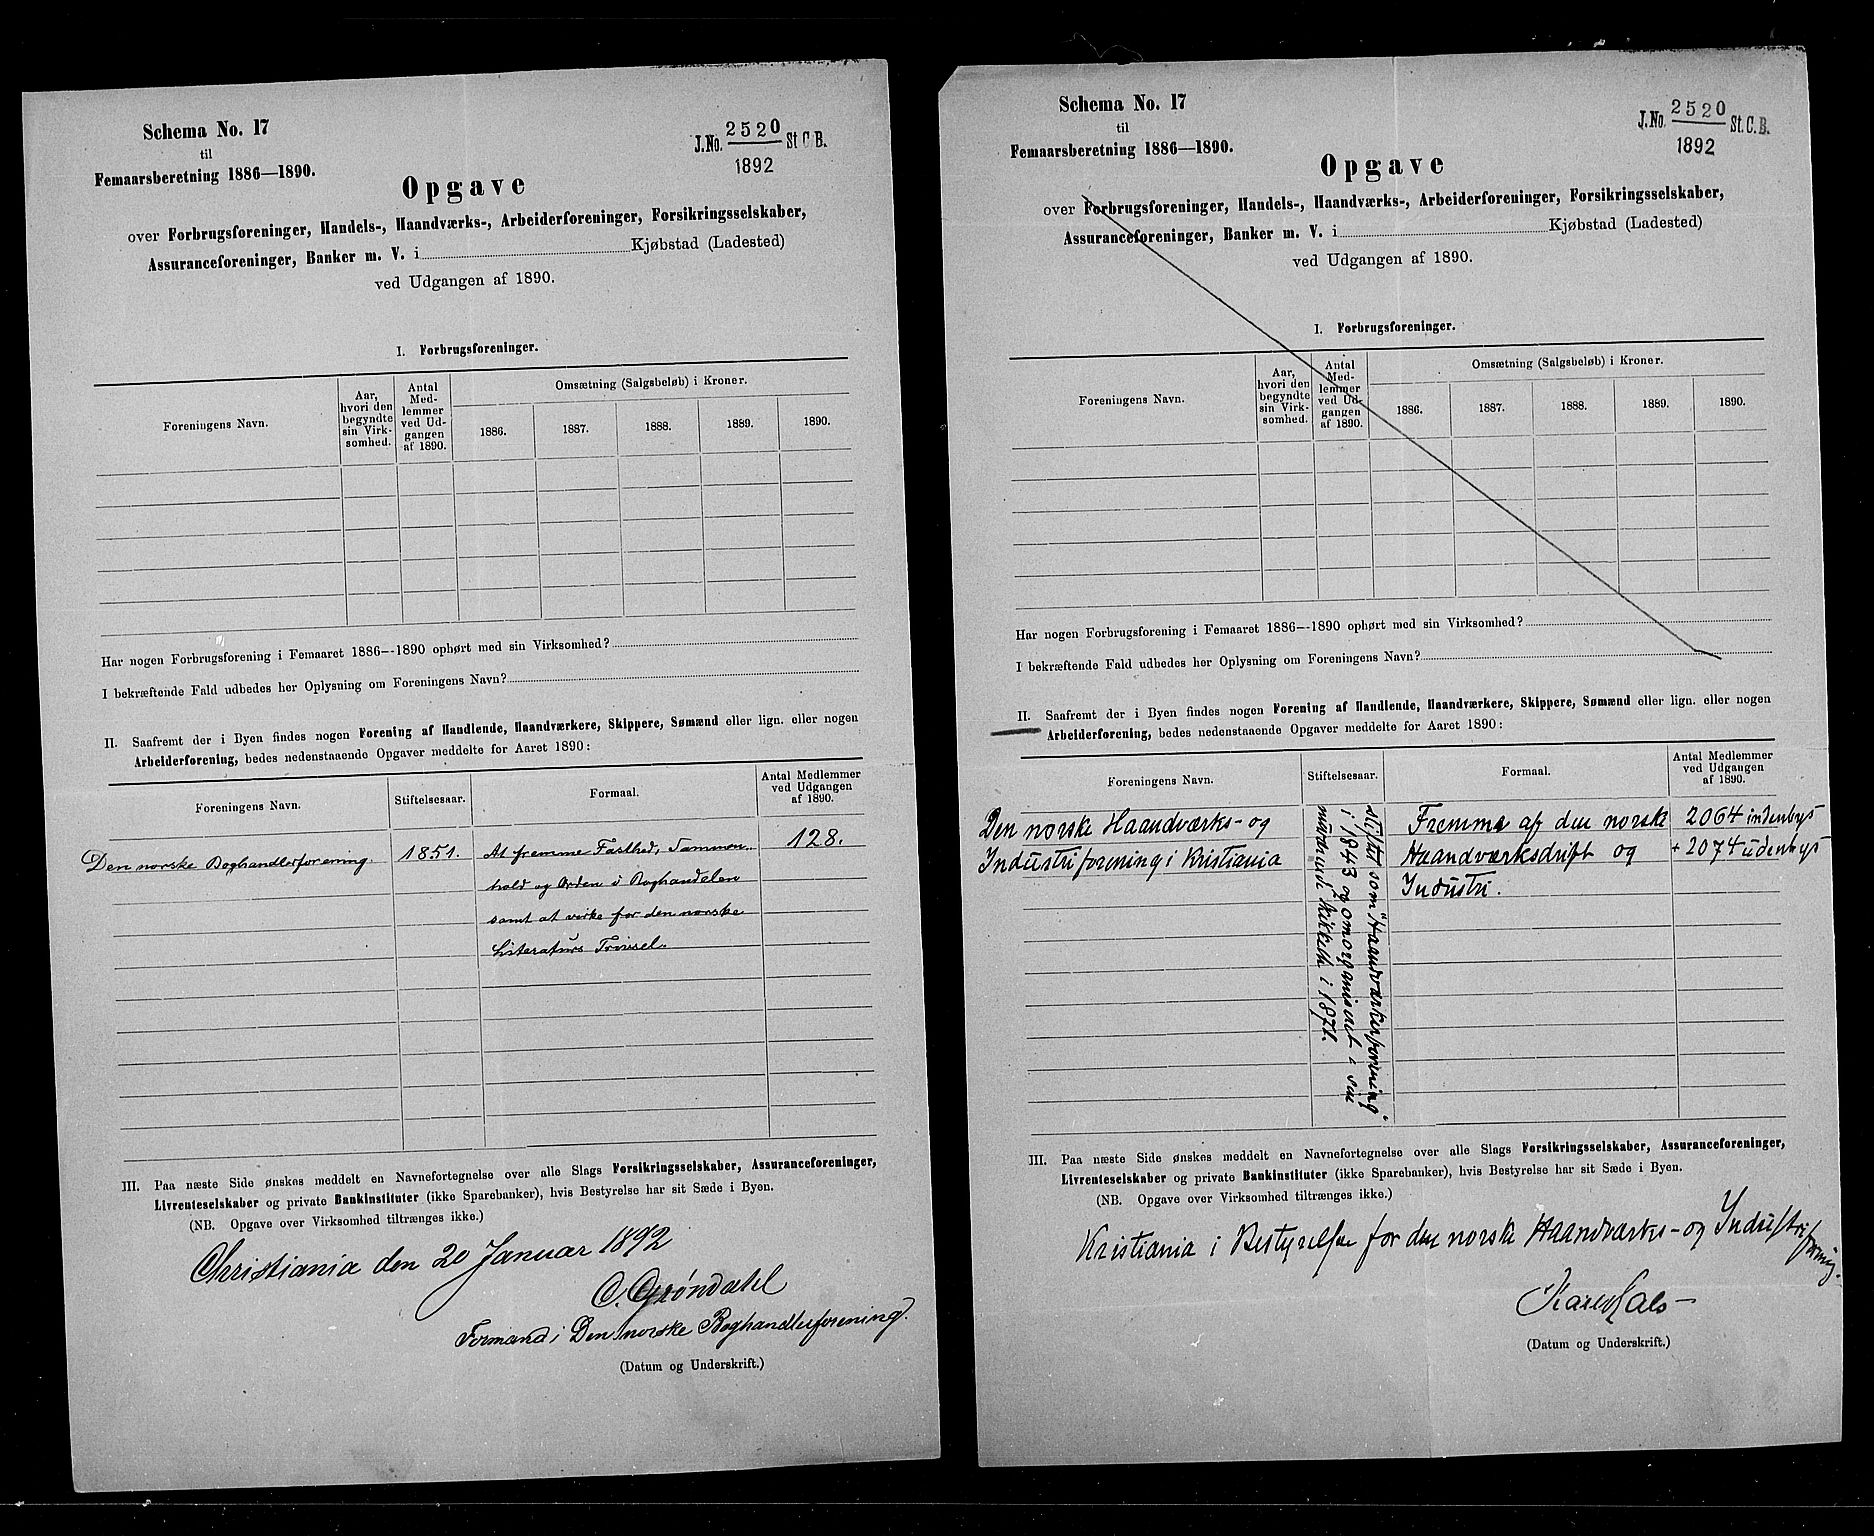 Schema No. 17
til
Femaarsberetning 1886—1890.
J.No. 2520 St.C.B.
1892
Opgave
over Forbrugsforeninger, Handels-, Haandværks-, Arbeiderforeninger, Forsikringsselskaber,
Assuranceforeninger, Banker m. V. i Kjøbstad (Ladested)
ved Udgangen af 1890.
I. Forbrugsforeninger.
Foreningens Navn.
Aar,
hvori den
begyndte
sin Virk-
somhed.
Antal
Med-
lemmer
ved Ud-
gangen
af 1890.
Omsætning (Salgsbeløb) i Kroner.
1886. 1887. 1888. 1889. 1890.
Har nogen Forbrugsforening i Femaaret 1886—1890 ophørt med sin Virksomhed?
I bekræftende Fald udbedes her Oplysning om Foreningens Navn?
II. Saafremt der i Byen findes nogen Forening af Handlende, Haandværkere, Skippere, Sømænd eller lign. eller nogen
Arbeiderforening, bedes nedenstaaende Opgaver meddelte for Aaret 1890:
Foreningens Navn.
Stiftelsesaar.
Formaal.
Antal Medlemmer
ved Udgangen
af 1890.
Den norske Boghandlerforening.
1851.
At fremme Fasthed, Sammen-
hold og Orden i Boghandelen
samt at virke for den norske
Literaturs Trivsel.
128.
III. Paa næste Side ønskes meddelt en Navnefortegnelse over alle Slags Forsikringsselskaber, Assuranceforeninger,
Livrenteselskaber og private Bankinstituter (ikke Sparebanker), hvis Bestyrelse har sit Sæde i Byen.
(NB. Opgave over Virksomhed tiltrænges ikke.)
Christiania den 20 Januar 1892
O. Grøndahl
Formand i Den norske Boghandlerforening.
(Datum og Underskrift.)
Schema No. 17
til
Femaarsberetning 1886—1890.
J.No. 2520 St.C.B.
1892
Opgave
over Forbrugsforeninger, Handels-, Haandværks-, Arbeiderforeninger, Forsikringsselskaber,
Assuranceforeninger, Banker m. V. i Kjøbstad (Ladested)
ved Udgangen af 1890.
I. Forbrugsforeninger.
Foreningens Navn.
Aar,
hvori den
begyndte
sin Virk-
somhed.
Antal
Med-
lemmer
ved Ud-
gangen
af 1890.
Omsætning (Salgsbeløb) i Kroner.
1886. 1887. 1888. 1889. 1890.
Har nogen Forbrugsforening i Femaaret 1886—1890 ophørt med sin Virksomhed?
I bekræftende Fald udbedes her Oplysning om Foreningens Navn?
II. Saafremt der i Byen findes nogen Forening af Handlende, Haandværkere, Skippere, Sømænd eller lign. eller nogen
Arbeiderforening, bedes nedenstaaende Opgaver meddelte for Aaret 1890:
Foreningens Navn.
Stiftelsesaar.
Formaal.
Antal Medlemmer
ved Udgangen
af 1890.
Den norske Haandværks- og
Industriforening i Kristiania
stiftet som "Haandværkerforening"
i 1843 og omorganiseret i sin
nuværende Skikkelse i 1871.
Fremme af den norske
Haandværksdrift og
Industri.
2064 indenbys
+ 2074 udenbys
III. Paa næste Side ønskes meddelt en Navnefortegnelse over alle Slags Forsikringsselskaber, Assuranceforeninger,
Livrenteselskaber og private Bankinstituter (ikke Sparebanker), hvis Bestyrelse har sit Sæde i Byen.
(NB. Opgave over Virksomhed tiltrænges ikke.)
Kristiania i Bestyrelsen for den norske Haandværks- og Industriforening.
Karl Hals
(Datum og Underskrift.)